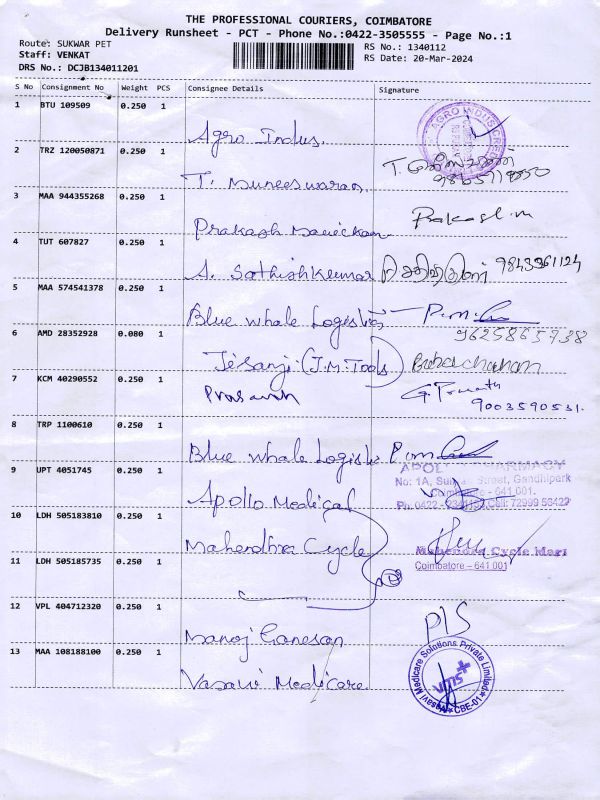 THE PROFESSIONAL COURIERS, COIMBATORE
Delivery Runsheet - PCT - Phone No.:0422-3505555 - Page No.:1
Route: SUKWAR PET
Staff: VENKAT
DRS No.: DCJB134011201
RS No.: 1340112
RS Date: 20-Mar-2024
S No Consignment No Weight PCS Consignee Details Signature
1 BTU 109509 0.250 1
Agro Indus.
AGRO INDUS
2 TRZ 120050871 0.250 1
T. Muneeswaran
T.
3 MAA 944355268 0.250 1
Prakash Manickam
Prakash.m
4 TUT 607827 0.250 1
A. Sathishkumar 9843361124
5 MAA 574541378 0.250 1
Blue Whale Logistics
9625865738
6 AMD 28352928 0.080 1
Jesanji (J.M. Tools)
7 KCM 40290552 0.250 1
Prasanth G. Prasanth
9003590531.
8 TRP 1100610 0.250 1
Blue Whale Logistic
9 UPT 4051745 0.250 1
Apollo Medical
APOLLO PHARMACY
No: 1A, Street, Gandhipark
Coimbatore - 641 001.
Ph: 0422 - Cell: 72999
10 LDH 505183810 0.250 1
Mahendhra Cycle
Mahendra Cycle Mart
Coimbatore - 641 001
11 LDH 505185735 0.250 1
12 VPL 404712320 0.250 1
Manoj Ganesan
P/S
13 MAA 108188100 0.250 1
Vasavi Medicare
Vasavi Medicare Solutions Private Limited
VMS+
CBE-01